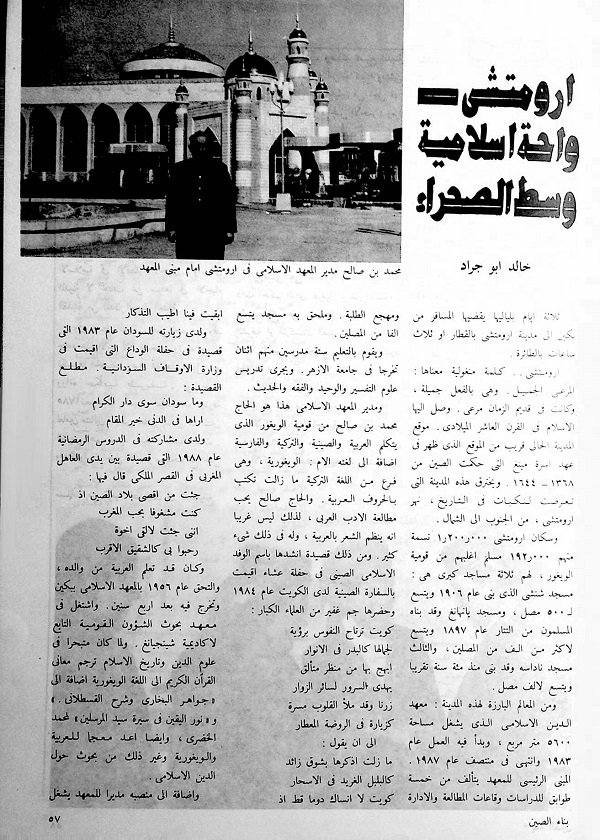 ارومتشى ــ
واحة اسلامية
وسط الصحراء
خالد ابو جراد
محمد بن صالح مدير المعهد الاسلامى فى ارومتشى امام مبنى المعهد
ثلاثة ايام بلياليها يقضيها المسافر من
بكين الى مدينة ارومتشى بالقطار او ثلاث
ساعات بالطائرة .
ارومتشى .. كلمة منغولية معناها :
المرعى الجميل . وهى بالفعل جميلة ،
وكانت فى قديم الزمان مرعى . وصل اليها
الاسلام فى القرن العاشر الميلادى . موقع
المدينة الحالى قريب من الموقع الذى ظهر فى
عهد اسرة مينغ التى حكمت الصين من
١٣٦٨ ــ ١٦٤٤ . ويخترق هذه المدينة التى
تعرضت لنكبات فى التاريخ ، نهر
ارومتشى ، من الجنوب الى الشمال .
وسكان ارومتشى ١٫٢٠٠٫٠٠٠ نسمة
منهم ١٩٢٫٠٠٠ مسلم اغلبهم من قومية
الويغور ، لهم ثلاثة مساجد كبرى هى :
مسجد شنشى الذى بنى عام ١٩٠٦ ويتسع
لـ ٥٠٠ مصل ، ومسجد يانهانغ وقد بناه
المسلمون من التتار عام ١٨٩٧ ويتسع
لاكثر من الف من المصلين ، والثالث
مسجد ناداسه وقد بنى منذ مئة سنة تقريبا
ويتسع لالف مصل .
ومن المعالم البارزة لهذه المدينة : معهد
الدين الاسلامى الذى يشغل مساحة
٥٦٠٠ متر مربع ، وبدأ فيه العمل عام
١٩٨٣ وانتهى فى منتصف عام ١٩٨٧ .
المبنى الرئيسى للمعهد يتألف من خمسة
طوابق للدراسات وقاعات المطالعة والادارة
ومهجع الطلبة . وملحق به مسجد يتسع
الفا من المصلين .
ويقوم بالتعليم ستة مدرسين منهم اثنان
تخرجا فى جامعة الازهر . ويجرى تدريس
علوم التفسير والوحيد والفقه والحديث .
ومدير المعهد الاسلامى هذا هو الحاج
محمد بن صالح من قومية الويغور الذى
يتكلم العربية والصينية والتركية والفارسية
اضافة الى لغته الام : الويغورية ، وهى
فرع من اللغة التركية ما زالت تكتب
بالحروف العربية . والحاج صالح يحب
مطالعة الادب العربى ، لذلك ليس غريبا
انه ينظم الشعر بالعربية ، وله فى ذلك شىء
كثير . ومن ذلك قصيدة انشدها باسم الوفد
الاسلامى الصينى فى حفلة عشاء اقيمت
بالسفارة الصينية لدى الكويت عام ١٩٨٤
وحضرها جم غفير من العلماء الكبار :
كويت ترتاح النفوس برؤية
لجمالها كالبدر فى الانوار
ابهج بها من منظر متألق
يهدى السرور لسائر الزوار
زرنا وقد ملأ القلوب مسرة
كزيارة فى الروضة المعطار
الى ان يقول :
ما زلت اذكرها بشوق زائد
كالبلبل الغريد فى الاسحار
كويت لا انساك دوما قط اذ
ابقيت فينا اطيب التذكار
ولدى زيارته للسودان عام ١٩٨٣ القى
قصيدة فى حفلة الوداع التى اقيمت فى
وزارة الاوقاف السودانية . مطلع
القصيدة :
وما سودان سوى دار الكرام
اراها فى الدنى خير المقام
ولدى مشاركته فى الدروس الرمضانية
عام ١٩٨٨ القى قصيدة بين يدى العاهل
المغربى فى القصر الملكى قال فيها :
جئت من اقصى بلاد الصين اذ
كنت مشغوفا بحب المغرب
اننى جئت لالقى اخوة
رحبوا بى كالشقيق الاقرب
وكان قد تعلم العربية من والده ،
والتحق عام ١٩٥٦ بالمعهد الاسلامى ببكين
وتخرج فيه بعد اربع سنين . واشتغل فى
معهد بحوث الشؤون القومية التابع
لاكاديمية شينجيانغ . ولما كان متبحرا فى
علوم الدين وتاريخ الاسلام ترجم معانى
القرآن الكريم الى اللغة الويغورية اضافة الى
« جواهر البخارى وشرح القسطلانى . »
و « نور اليقين فى سيرة سيد المرسلين » لمحمد
الخضرى ، وايضا اعد معجما للعربية
والويغورية وغير ذلك من بحوث حول
الدين الاسلامى .
واضافة الى منصبه مديرا للمعهد يشغل
بناء الصين
٥٧